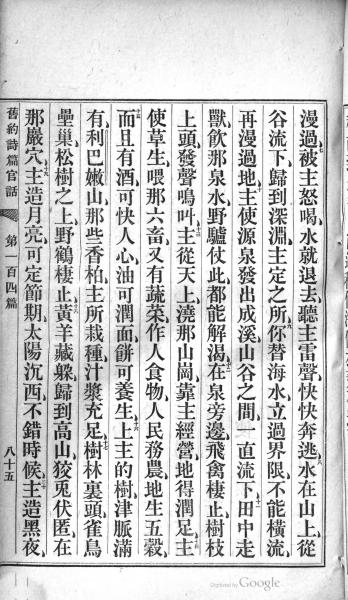 漫過、被主怒喝水就退去、聽主雷聲快快奔逃、水在山上、從
谷流下、歸到深淵、主定之所、你替海水立過界限、不能橫流、
再漫過地、主使源泉發出成溪、山谷之間、一直流下、田中走
獸飲那泉水、野驢仗此都能解渴、在泉旁邊、飛禽棲止、樹枝
上頭、發聲鳴叫、主從天上、澆那山崗、靠主經營、地得潤足、主
使草生、喂那六畜、又有蔬菜、作人食物、人民務農、地生五穀、
而且有酒、可快人心、油可潤面、餅可養生、上主的樹、津脈滿
有、利巴嫩山、那些香柏、主所栽種、汁漿充足、樹林裏頭、雀鳥
壘巢、松樹之上、野鶴棲止、黃羊藏躱、歸到高山、狡兎伏匿、在
那巖穴、主造月亮、可定節期、太陽沉西、不錯時候、主造黑夜、
舊約詩篇官話 第一百四篇 八十五
Digitized by Google